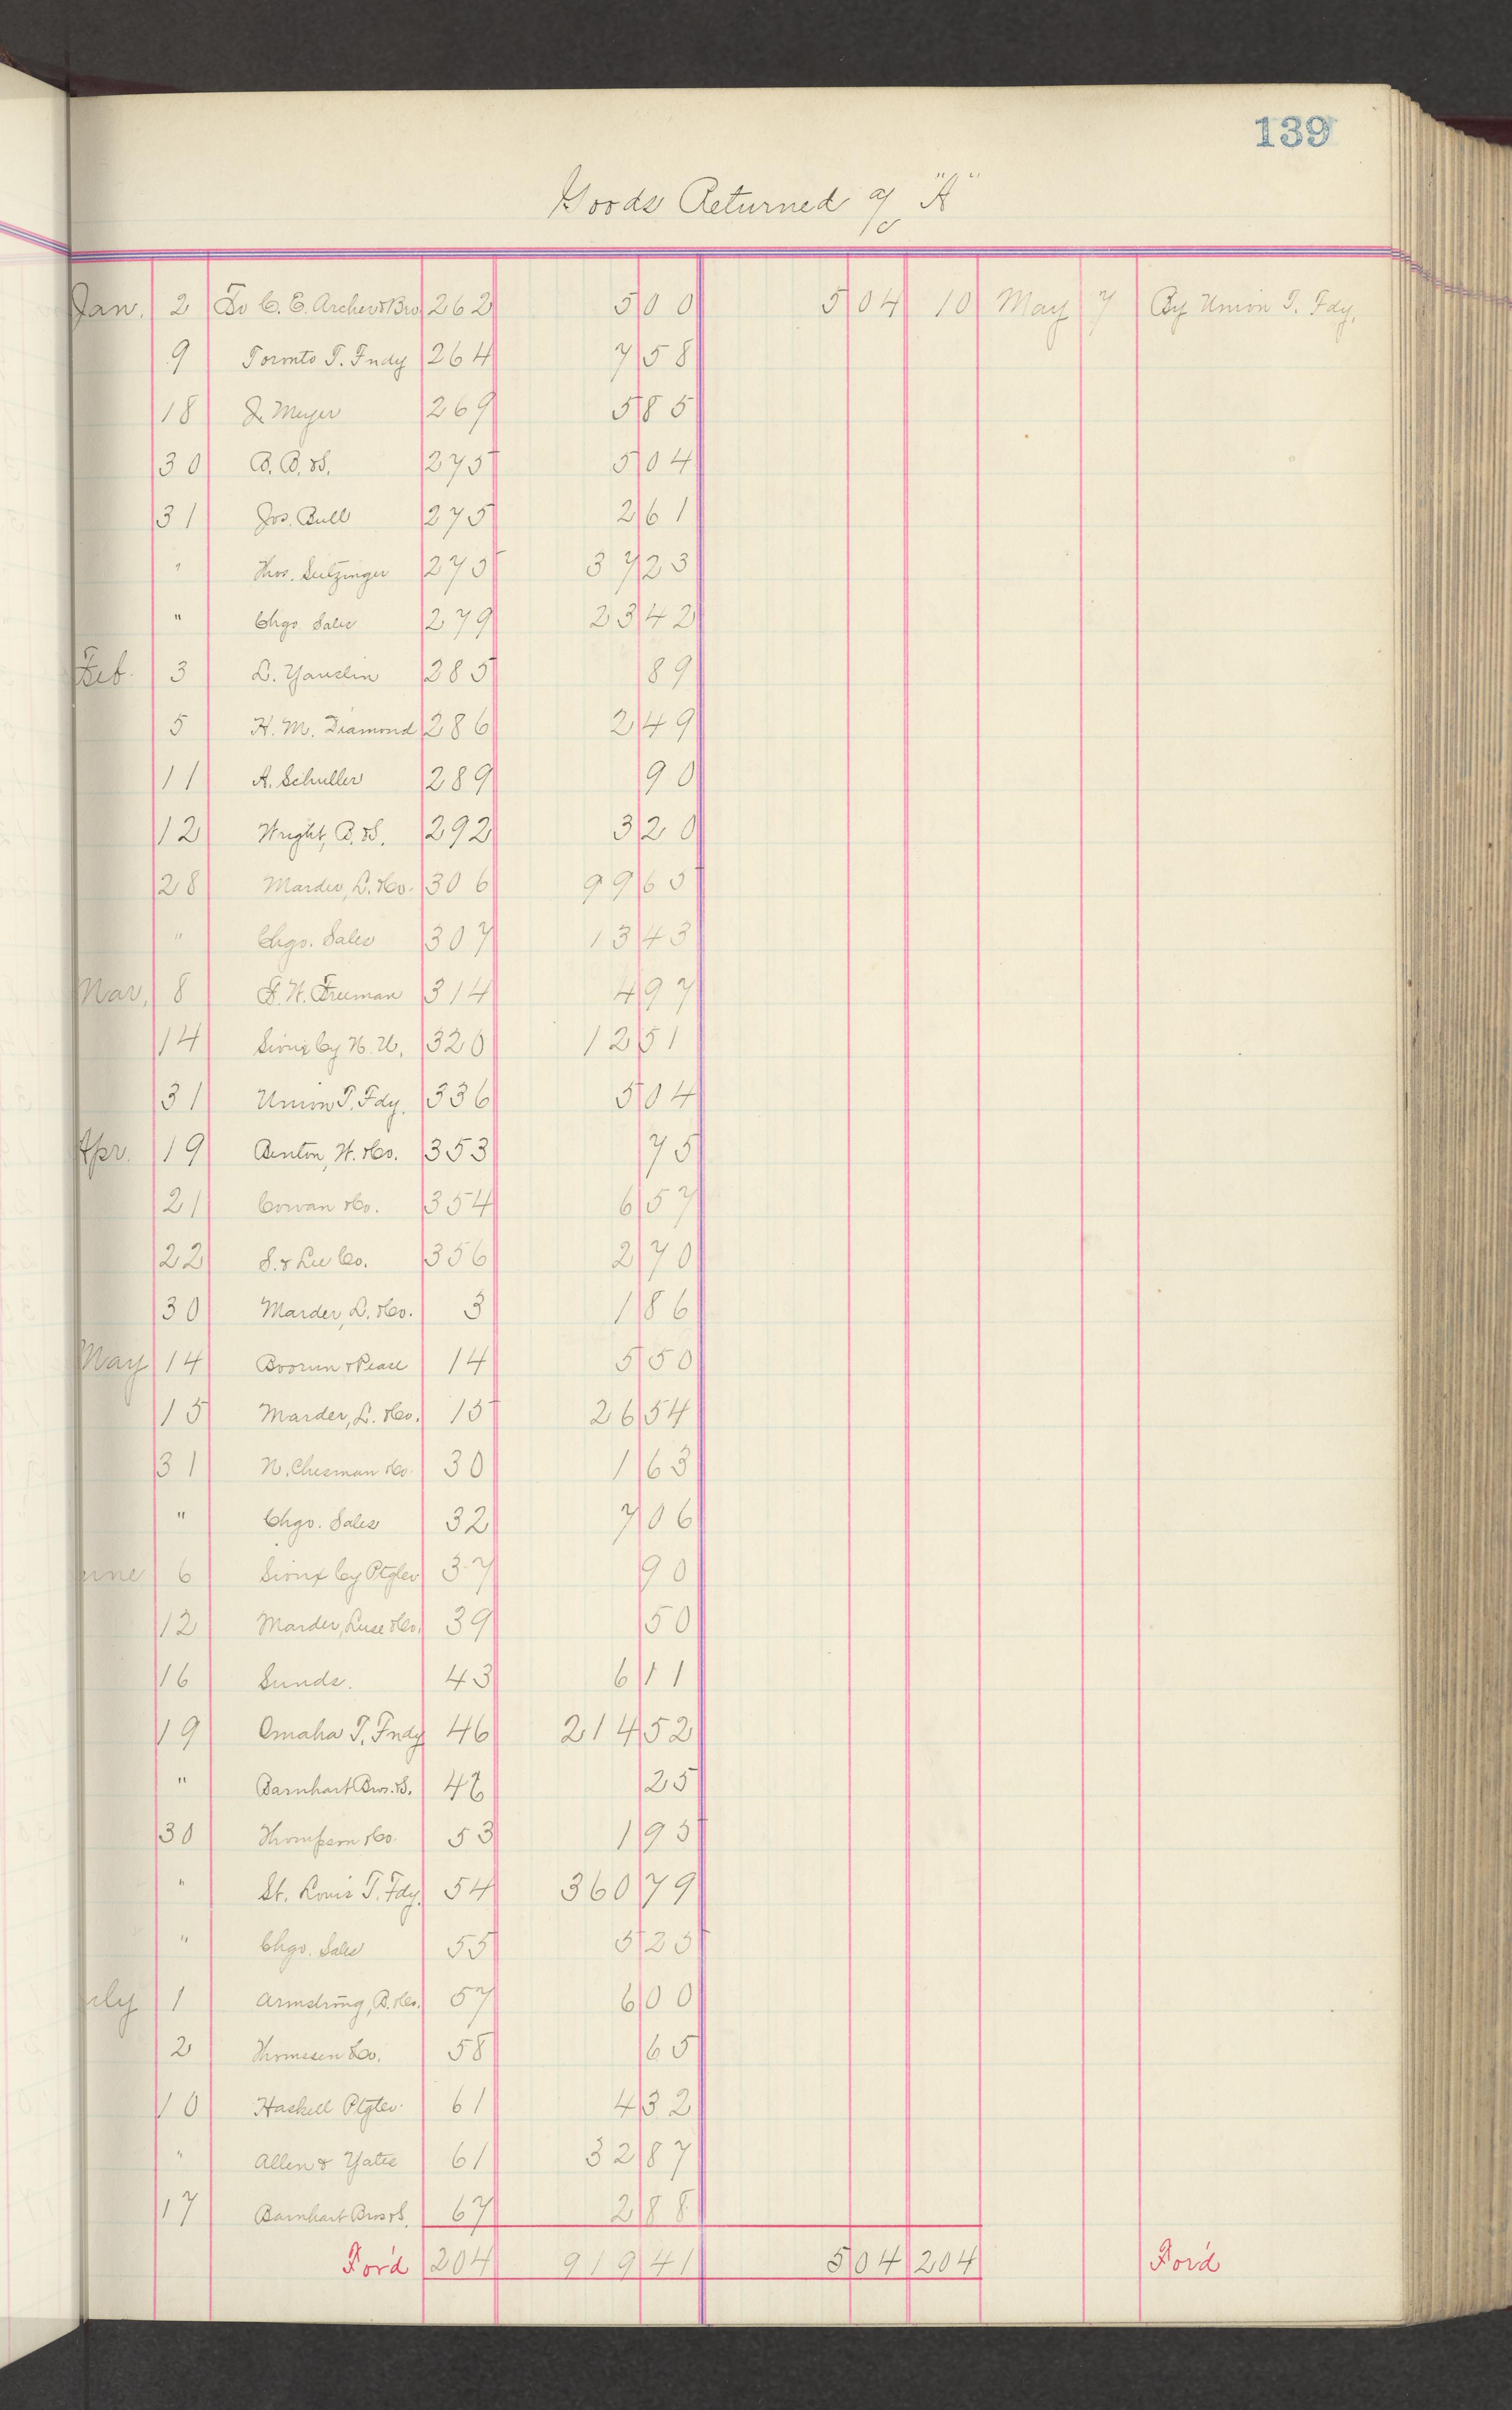 139
Goods Returned a/c "A"
Jan. 2 To C. E. Archer & Bro 262 5 00 5 04 10 May 7 By Union T. Fdy.
9 Toronto T. Fndy 264 7 58
18 J. Meyer 269 5 85
30 B. B. & S. 275 5 04
31 Jos. Bull 275 2 61
" Thos. Leitzinger 275 37 23
" Chgo. Sales 279 23 42
Feb. 3 L. Yauslin 285 89
5 H. M. Diamond 286 2 49
11 A. Schuller 289 90
12 Wright, B. & S. 292 3 20
28 Marder, L. & Co. 306 99 65
" Chgo. Sales 307 13 43
Mar. 8 F. H. Freeman 314 4 97
14 Sioux Cy N. U. 320 12 51
31 Union T. Fdy. 336 5 04
Apr. 19 Benton, W. & Co. 353 75
21 Cowan & Co. 354 6 57
22 S. & Lee Co. 356 2 70
30 Marder, L. & Co. 3 1 86
May 14 Boorum & Pease 14 5 50
15 Marder, L. & Co. 15 26 54
31 N. Chesman & Co. 30 1 63
" Chgo. Sales 32 7 06
June 6 Sioux Cy Ptg Co 37 90
12 Marder, Luse & Co. 39 50
16 Sunds. 43 6 11
19 Omaha T. Fndy 46 214 52
" Barnhart Bros. & S. 46 25
30 Thompson & Co. 53 1 95
" St. Louis T. Fdy. 54 360 79
" Chgo. Sales 55 5 25
July 1 Armstrong, B. & Co. 57 6 00
2 Thomsen & Co. 58 65
10 Haskell Ptg Co. 61 4 32
" Allen & Yates 61 32 87
17 Barnhart Bros & S. 67 2 88
For'd 204 919 41 5 04 204 For'd